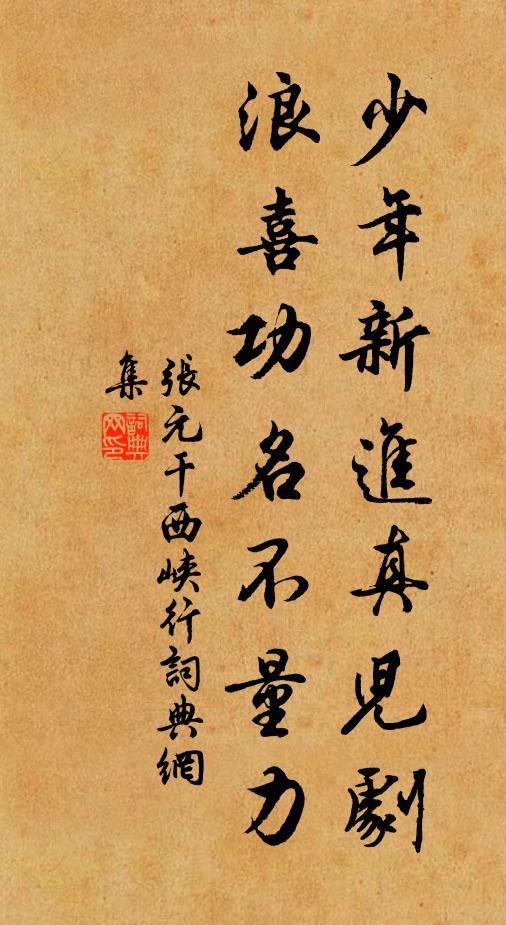 少年新進真児劇
浪喜功名不量力
張元干西峽行詞典網
集
詞典网印